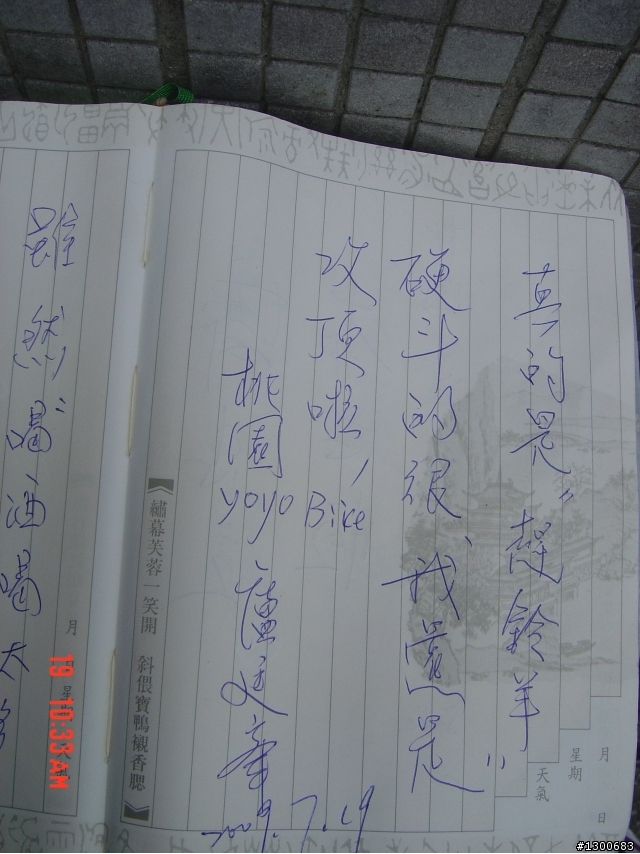 真的是"趕羚羊
硬斗的很、我還是"
攻頂啦, Bike
桃園 yoyo 盧
2009.7.19
繡幕芙蓉一笑開 斜偎寶鴨襯香腮
月
星期
天氣
月 日
雖然"喝酒喝大
19 10:33 AM
#1300683